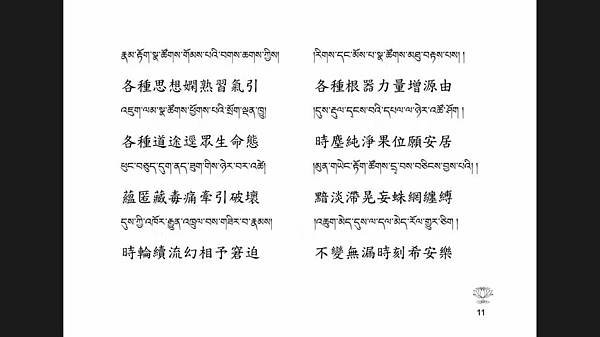 རྣམ་རྟོག་སྣ་ཚོགས་གོམས་པའི་བགས་ཆགས་ཀྱིས།
各種思想嫻熟習氣引
འཇུག་ལམ་སྣ་ཚོགས་ཕྱོགས་པའི་སྲོག་ལྡན་ཁྱུ།
各種道途逕眾生命態
ཕུང་བཅུད་དུག་ནད་ཟུག་གིས་ཉེར་བར་འཚེ།
蘊匿藏毒痛牽引破壞
དུས་ཀྱི་འཁོར་རྒྱུན་འཁྲུལ་བས་གཟིར་བ་རྣམས།
時輪續流幻相予窘迫
།རིགས་དང་མོས་པ་སྣ་ཚོགས་མཐུ་བརྟས་པས། །
各種根器力量增源由
།དུས་རྡུལ་དྭངས་བའི་དཔལ་ལ་ཉེར་འཚོ་ཤོག །
時塵純淨果位願安居
།མུན་གཡེང་རྟོག་ཚོགས་དྲྭ་བས་བཅིངས་བྱས་པའི། །
黯淡滯晃妄蛛網纏縛
།འཆུག་མེད་དུས་ལ་དལ་མེད་རོལ་གྱུར་ཅིག །
不變無漏時刻希安樂
11